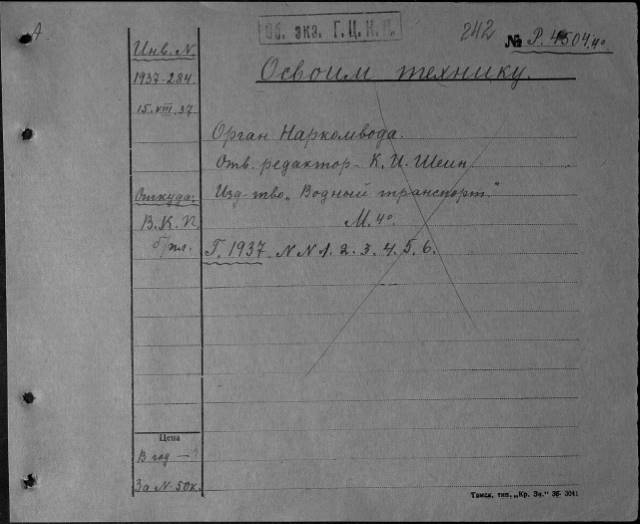 А
Об. экз. Г.Ц.К.П.
242
№ Р. 4504 4°
Инв. N
Освоим технику.
1937-284
15.VIII.37
Орган Наркомвода.
Отв. редактор - К. И. Шеин
Откуда:
Изд-тво „Водный транспорт."
В.К.П.
М. 4°
б/пл.
Г. 1937 N N 1. 2. 3. 4. 5. 6.
Цена
В год —
За N 50к.
Тамск. тип. „Кр. Зн." 36 3041